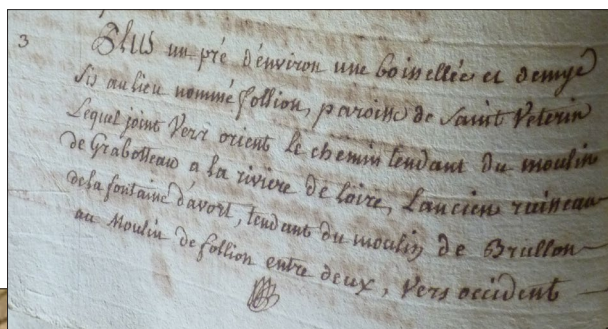 3 Plus un pré d'environ une boisellée et demye
sis au lieu nommé follion, paroisse de Saint Veterin
Lequel joint Vers orient le chemin tendant du moulin
de Grabotteau a la riviere de loire, Lancien ruisseau
de la fontaine d'avort, tendant du moulin de Brullon
au Moulin de follion entre deux, Vers occident